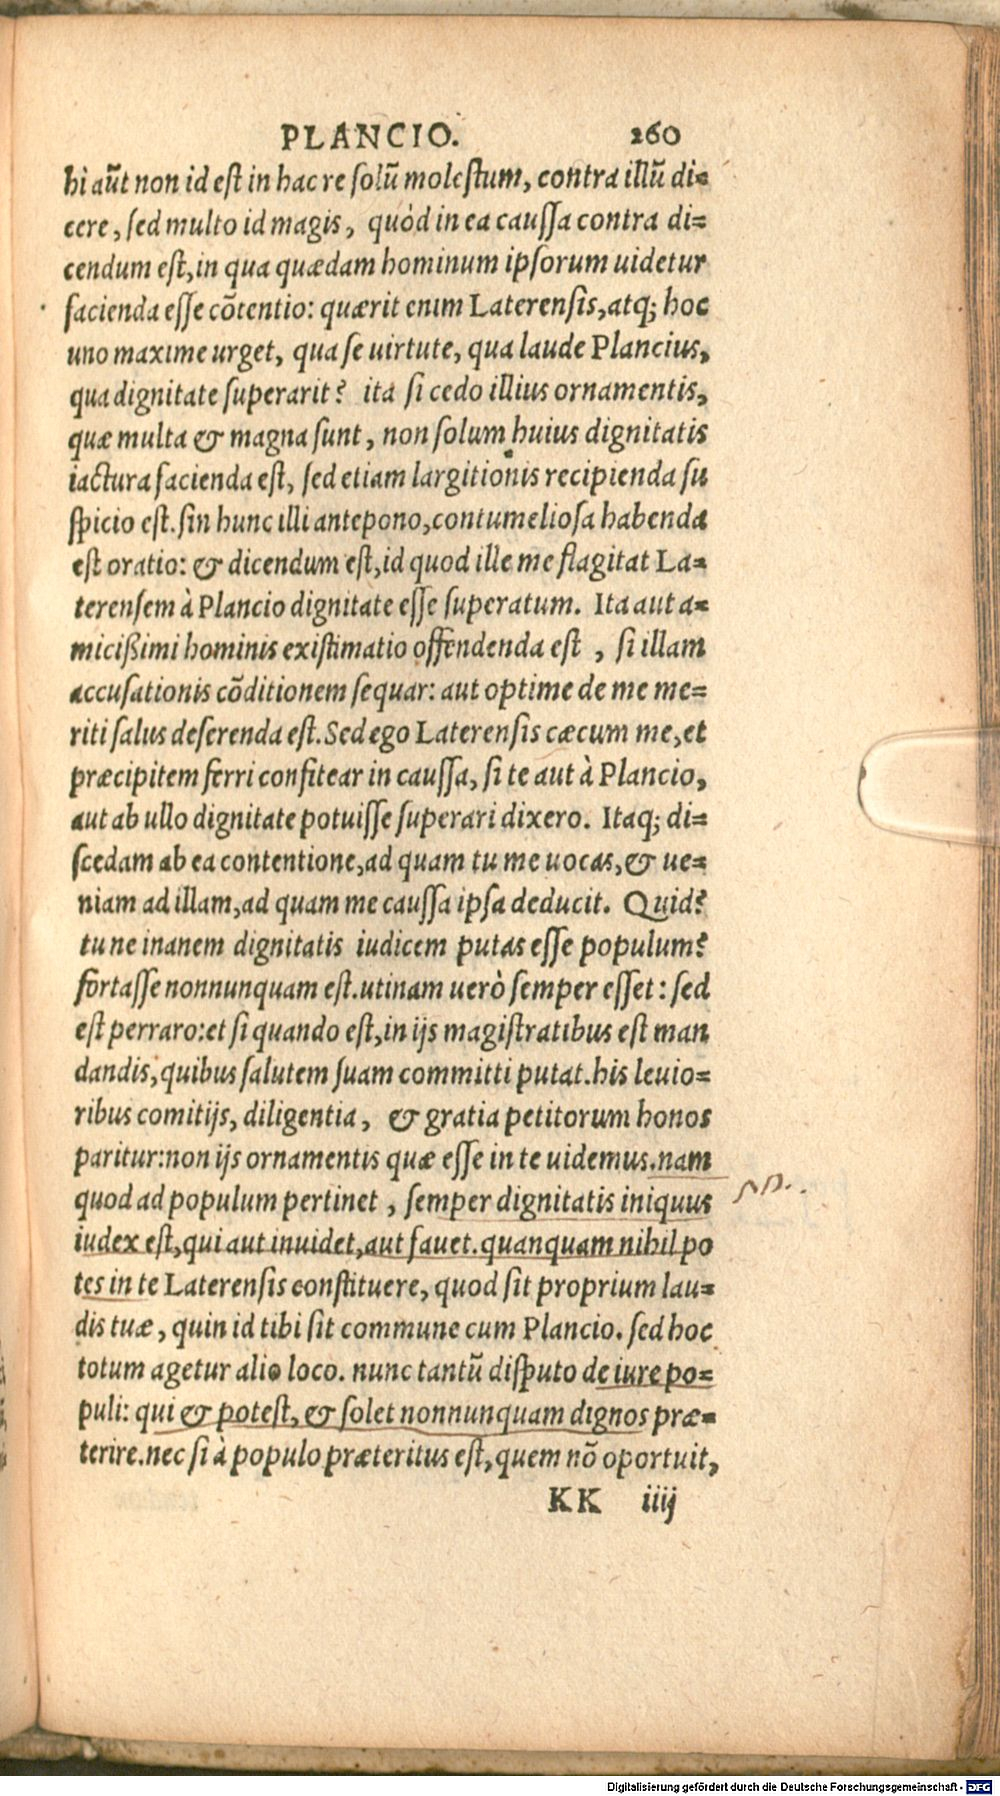 PLANCIO. 260
hi aũt non id est in hac re solũ molestum, contra illũ di=
cere, sed multo id magis, quòd in ea caussa contra di=
cendum est, in qua quædam hominum ipsorum uidetur
facienda esse cõtentio: quærit enim Laterensis, atq; hoc
uno maxime urget, qua se uirtute, qua laude Plancius,
qua dignitate superarit? ita si cedo illius ornamentis,
quæ multa & magna sunt, non solum huius dignitatis
iactura facienda est, sed etiam largitionis recipienda su
spicio est. sin hunc illi antepono, contumeliosa habenda
est oratio: & dicendum est, id quod ille me flagitat La=
terensem à Plancio dignitate esse superatum. Ita aut a=
micißimi hominis existimatio offendenda est, si illam
accusationis cõditionem sequar: aut optime de me me=
riti salus deserenda est. Sed ego Laterensis cæcum me, et
præcipitem ferri confitear in caussa, si te aut à Plancio,
aut ab ullo dignitate potuisse superari dixero. Itaq; di=
scedam ab ea contentione, ad quam tu me uocas, & ue=
niam ad illam, ad quam me caussa ipsa deducit. Quid?
tu ne inanem dignitatis iudicem putas esse populum?
fortasse nonnunquam est. utinam uerò semper esset: sed
est perraro: et si quando est, in ijs magistratibus est man
dandis, quibus salutem suam committi putat. his leuio=
ribus comitijs, diligentia, & gratia petitorum honos
paritur: non ijs ornamentis quæ esse in te uidemus. nam
quod ad populum pertinet, semper dignitatis iniquus
iudex est, qui aut inuidet, aut fauet. quanquam nihil po
tes in te Laterensis constituere, quod sit proprium lau=
dis tuæ, quin id tibi sit commune cum Plancio. sed hoc
totum agetur alio loco. nunc tantũ disputo de iure po=
puli: qui & potest, & solet nonnunquam dignos præ=
terire. nec si à populo præteritus est, quem nõ oportuit,
KK iiij
Digitalisierung gefördert durch die Deutsche Forschungsgemeinschaft - DFG